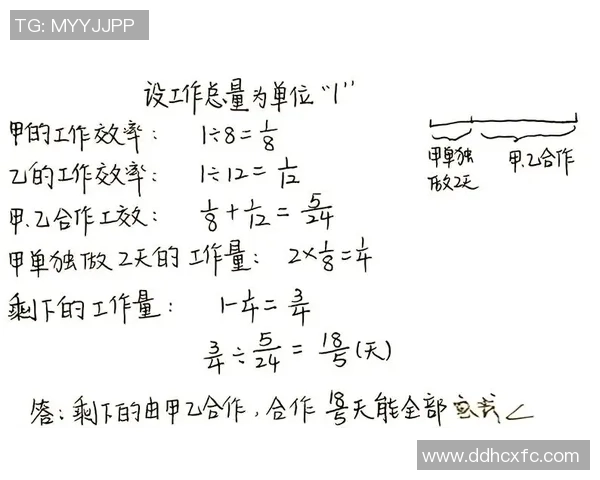 TG: MYYJJPP
设工作总量为单位“1”
甲的工作效率: 1÷8=1/8
乙的工作效率: 1÷12=1/12
甲.乙合作工效: 1/8+1/12=5/24
甲单独做2天的工作量: 2×1/8=1/4
剩下的工作量: 1-1/4=3/4
3/4÷5/24=18/5(天)
答:剩下的由甲乙合作,合作18/5天能全部
甲单独
做2天
甲.乙合作
www.ddhcxfc.com